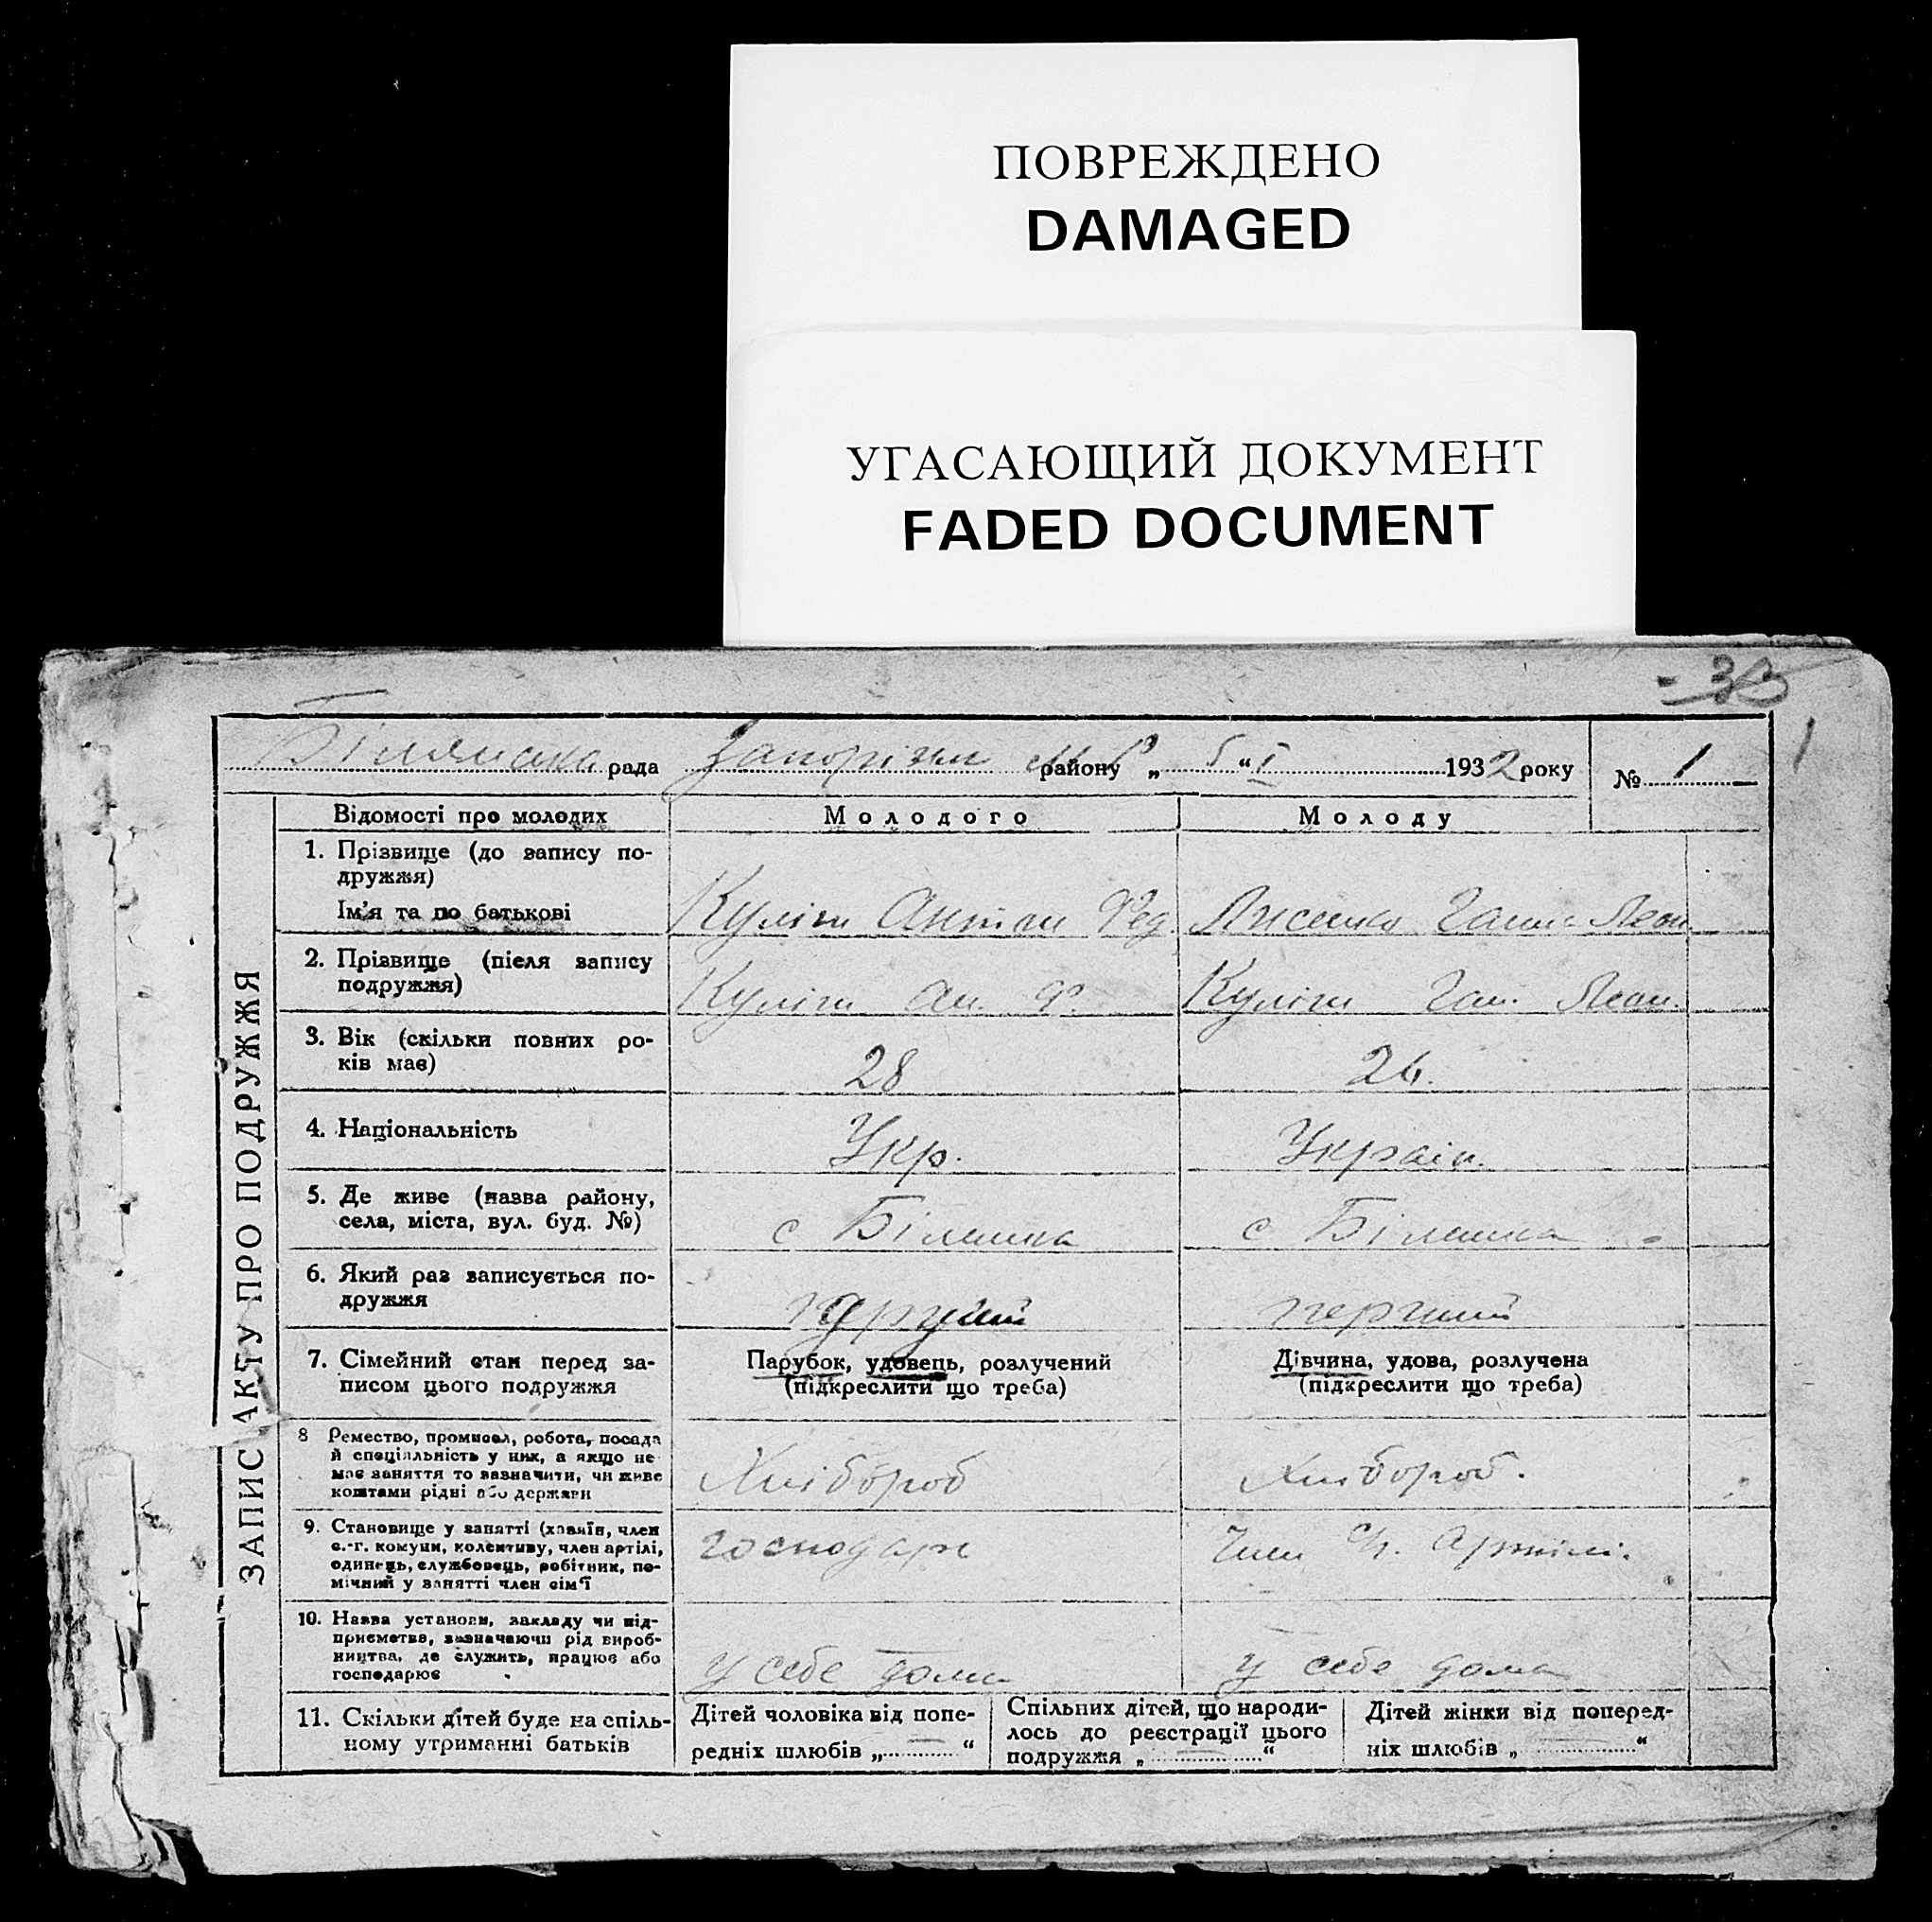 ПОВРЕЖДЕНО
DAMAGED
УГАСАЮЩИЙ ДОКУМЕНТ
FADED DOCUMENT
33
1
рада району „ 5 “ I 1932 року № 1
ЗАПИС АКТУ ПРО ПОДРУЖЖЯ
Відомості про молодих
Молодого
Молоду
1. Прізвище (до запису по-
дружжя)
Ім'я та по батькові
Куліш Антон Фед.
Ганна Леон.
2. Прізвище (після запису
подружжя)
Куліш Ан. Ф.
Куліш Ган. Леон.
3. Вік (скільки повних ро-
ків має)
28
24.
4. Національність
Укр.
Україн.
5. Де живе (назва району,
села, міста, вул. буд. №)
с Біленька
с Біленька
6. Який раз записується по-
дружжя
другий
перший
7. Сімейний стан перед за-
писом цього подружжя
Парубок, удовець, розлучений
(підкреслити що треба)
Дівчина, удова, розлучена
(підкреслити що треба)
8 Ремество, промисел, робота, посада
й спеціяльність у них, а якщо не
має заняття то зазначити, чи живе
коштами рідні або держави
Хлібороб
Хлібороб.
9. Становище у занятті (хазяїн, член
с.-г. комуни, колективу, член артілі,
одинець, службовець, робітник, по-
мічний у занятті член сім'ї
господарь
Член Артілі.
10. Назва установи, закладу чи під-
приємства, зазначаючи рід вироб-
ництва, де служить, працює або
господарює
у себе дома
у себе дома
11. Скільки дітей буде на спіль-
ному утриманні батьків
Дітей чоловіка від попе-
редніх шлюбів „ — “
Спільних дітей, що народи-
лось до реєстрації цього
подружжя „ — “
Дітей жінки від поперед-
ніх шлюбів „ — “